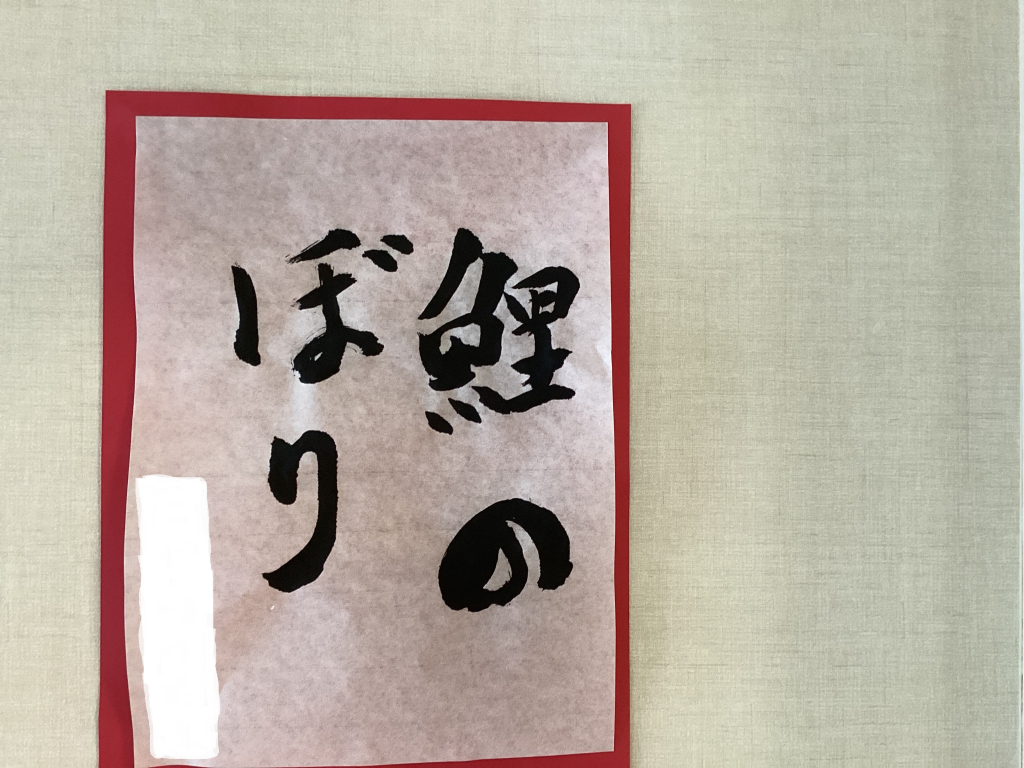 鯉の
ぼり